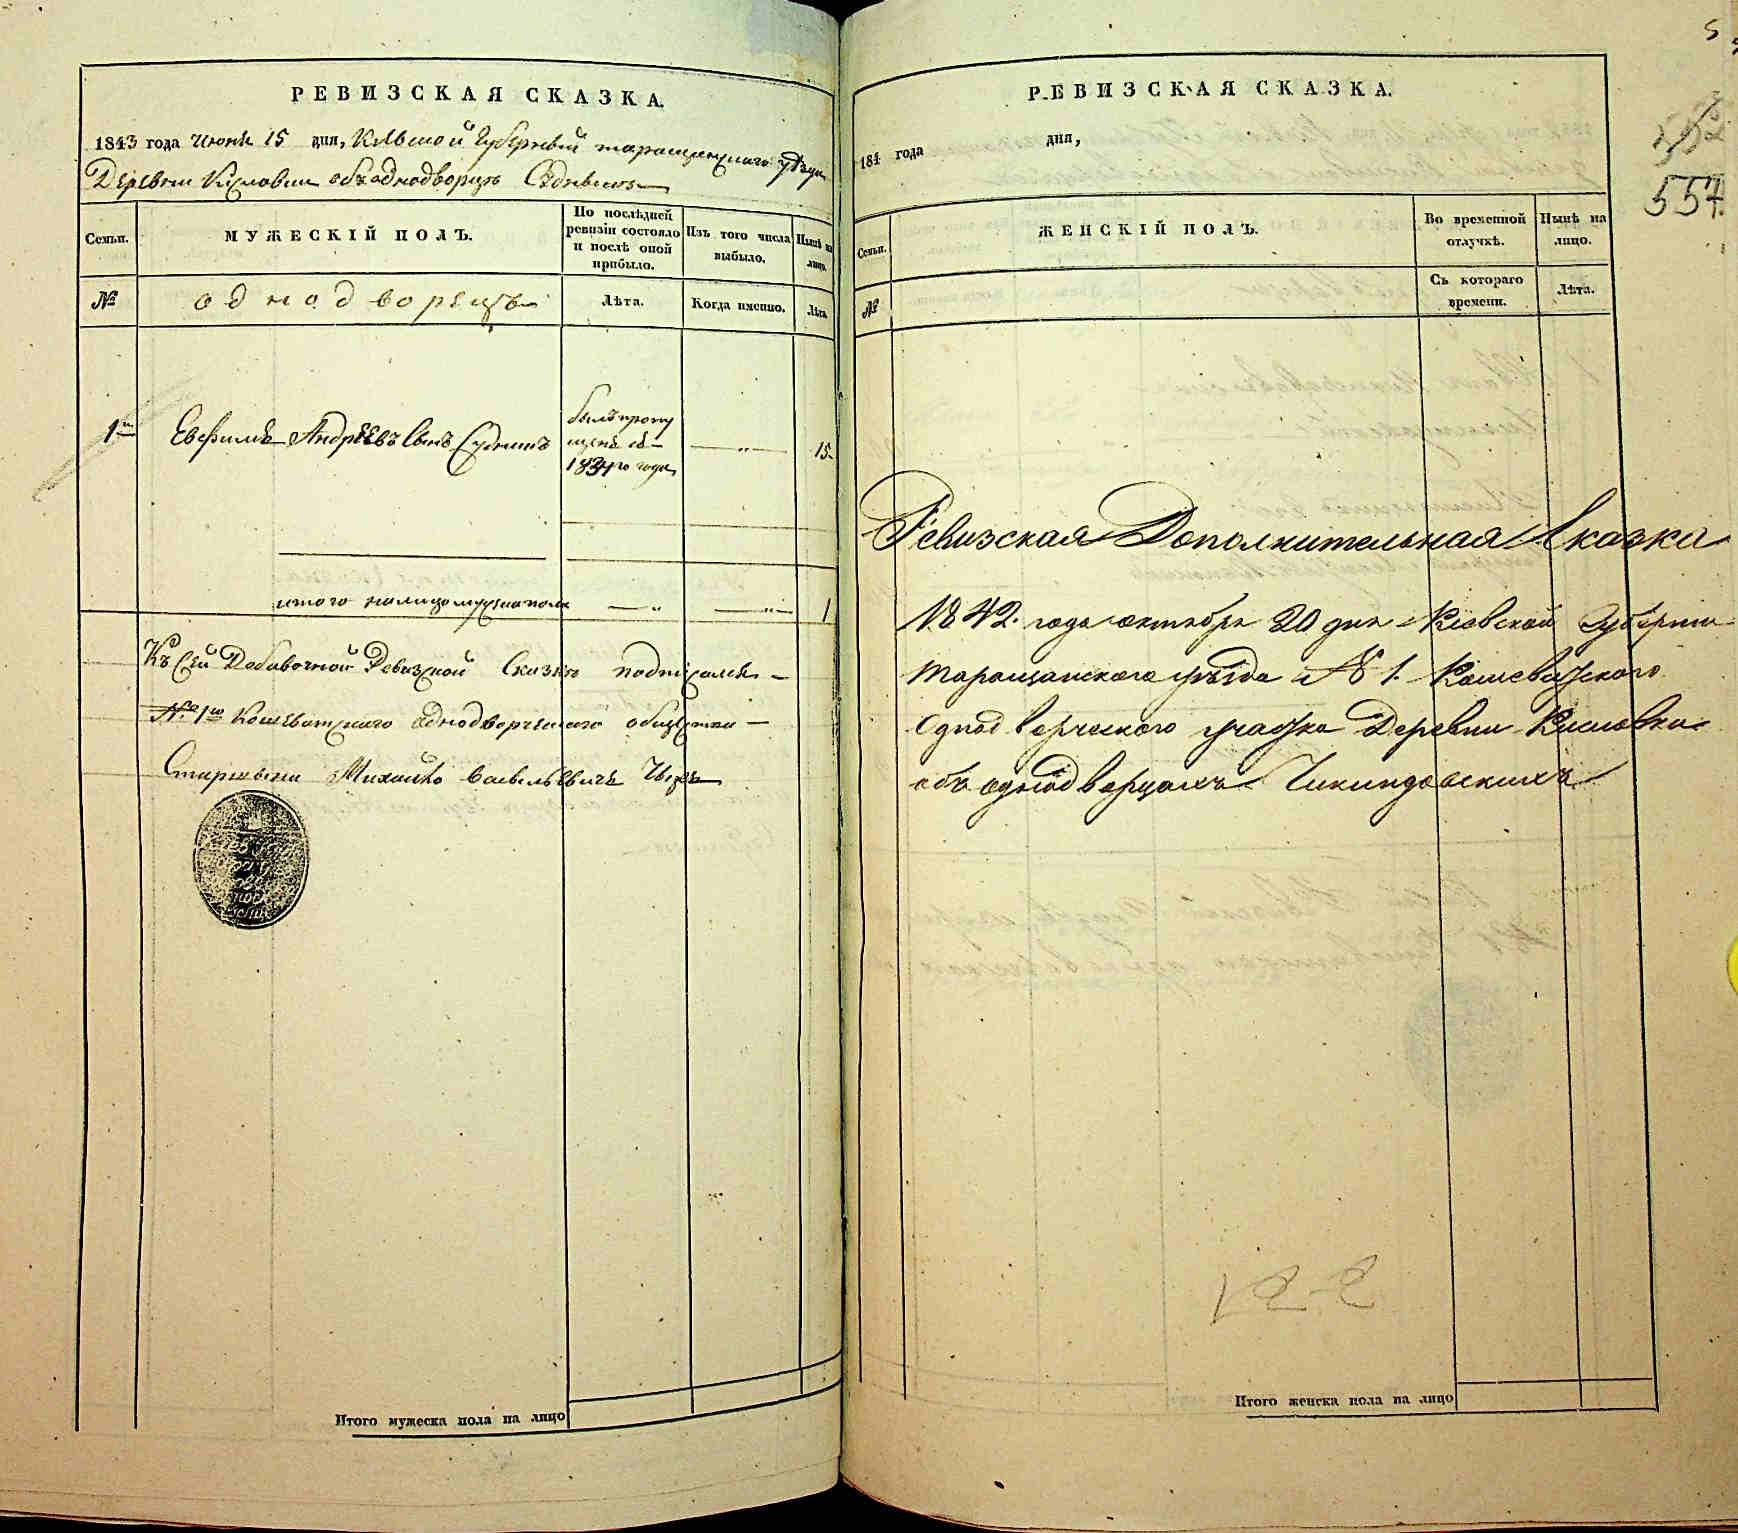 РЕВИЗСКАЯ СКАЗКА.
1843 года Июня 15 дня, Кіевской Губерніи таращанскаго уѣзда
Деревни Кисловки объ однодворцѣ
Семьи.
МУЖЕСКІЙ ПОЛЪ.
По послѣдней ревизіи состояло и послѣ оной прибыло.
Изъ того числа выбыло.
Нынѣ на лицо.
№
однодворецъ
Лѣта.
Когда именно.
Лѣта
1й Евфимъ Андрѣевъ Сынъ
былъ пропу
щенъ съ
1834го года
15
итого налицо мужска пола 1
Къ Сей Добавочной Ревизской Сказкѣ подписался
№ 1го Кошеватскаго однодворческаго общества
Старшина Михайло Васильевичъ
Итого мужеска пола на лицо
РЕВИЗСКАЯ СКАЗКА.
184 года дня,
557.
Семьи.
ЖЕНСКІЙ ПОЛЪ.
Во временной отлучкѣ.
Нынѣ на лицо.
№
Съ котораго времени.
Лѣта.
Ревизская Дополнительная Сказка
1842. года октября 20 дня Кіевской Губерніи
Таращанскаго уѣзда № 1. Кошеватскаго
Однодворческого участка Деревни Кисловки
объ однодворцахъ Чикиндовскихъ
Итого женска пола на лицо